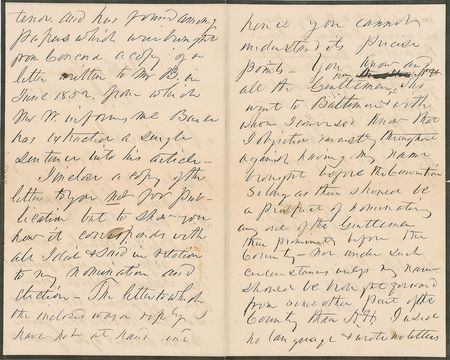 tenor, and has found among
papers which were brought
from Concord a copy of a
letter written to Mr B. in
June 1852, from which
Mr W. informs me
has extracted a single
sentence into his article –
I inclose a copy of the
letter to you not for pub-
lication but to show you
how it corresponds with
all I did & said in relation
to my nomination and
election – The letter to which
the inclosed was a reply I
have not at hand and
hence you cannot
understand its precise
points – You know and
all the Gentlemen, who
went to Baltimore & with
whom I conversed know that
I objected earnestly throughout
against having my name
brought before the Convention
so long as there should be
a prospect of nominating
any one of the Gentlemen
then prominent before the
Country – Nor under such
circumstances unless my name
should be brought forward
from some other part of the
Country than N.H. I used
no language & wrote no letters